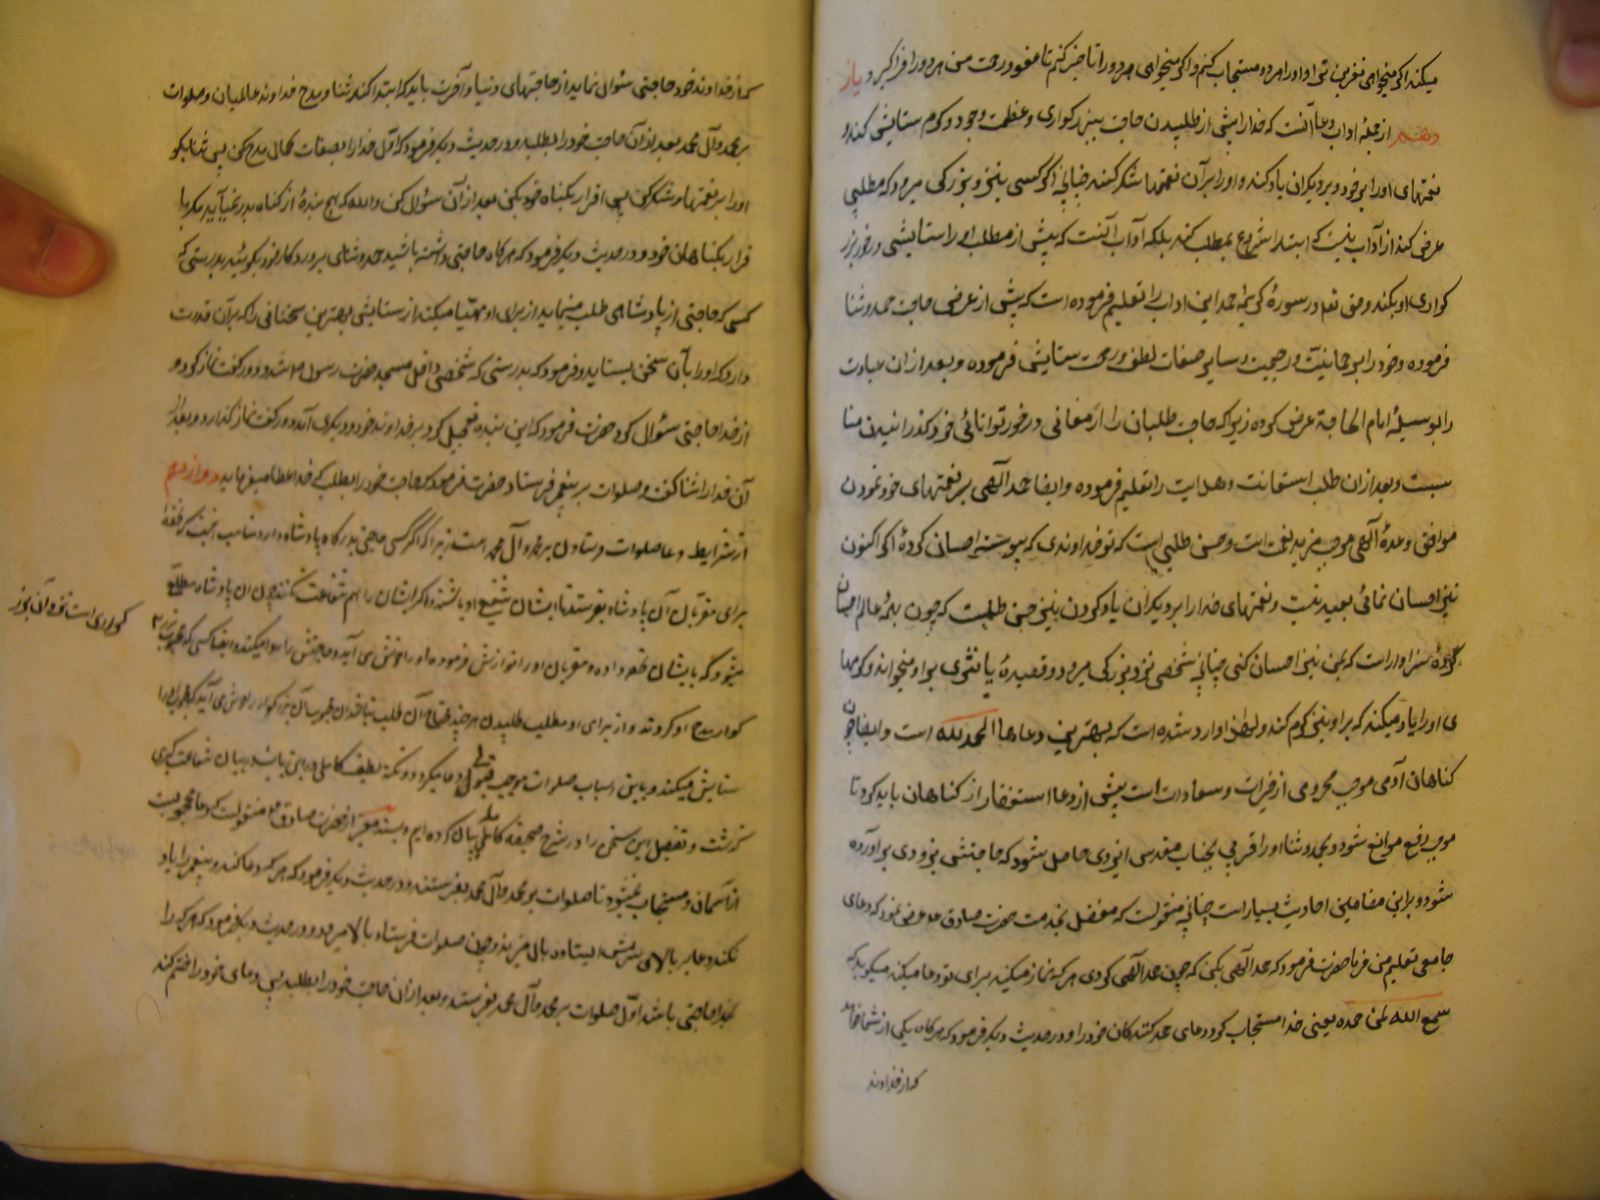 میکند اگر میخواهی نفرین تو او را و امر ده مستجاب کنم و اگر میخواهی هر دو را تاخیر کنم تا عفو و رحمت من هر دو را فرا گیرد یاز
دهم از جمله اداب دعا آنست که خدا را پیش از طلبیدن حاجت ببزرکواری و عظمت و جود و کرم ستایش کند و
نعمتهای او را بر خود و بر دیکران یاد کند و او را بر آن نعمتها شکر کند چنانچه اگر کسی بنزد بزرکی میرود که مطلبی
عرض کند از آداب نیست که ابتدا شروع بمطلب کند بلکه آداب آنست که پیش از مطلب او را ستایشی در خور بزر
کواری او بکند و حق تعم در سوره کریمه حمد این اداب را تعلیم فرموده است که پیش از عرض حاجت حمد و ثنا
فرموده و خود را برحمانیت و رحیمیت و سایر صفات لطف و رحمت ستایش فرموده و بعد از ان عبادت
را بوسیله امام الحاجة عرض کرده زیرا که حاجت طلبان را ارمغانی در خور توانائی خود کذرانیدن منا
سبست و بعد از ان طلب استعانت و هدایت را تعلیم فرموده و ایضا حمد الهی بر نعمتهای خود نمودن
موافق وعده الهی موجب مزید نعمت است و حسن طلبی است که تو خداوندی که پیوسته احسانی کرده اگر اکنون
نیز احسان نمائی بعید نیست و نعمتهای خدا را بر دیکران یاد کردن نیز حسن طلبست که چون بهمه عالم احسان
کرده سزاوار است که بمن نیز احسان کنی چنانچه شخصی نزد بزرکی میرود و قصیده یا نثری بر او میخواند و کرمها
ی او را یاد میکند که بر او نیز کرم کند و لهذا وارد شده است که بهترین دعاها الحمد لله است و ایضا چون
کناهان آدمی موجب محرومی از خیرات و سعادات است پیش از دعا استغفار از کناهان باید کرد تا
موجب رفع موانع شود و بحمد و ثنا او را قربی بجناب مقدس ایزدی حاصل شود که حاجتش بزودی بر آورده
شود و بر این مضامین احادیث بسیار است چنانچه منقولست که مفضل بخدمت حضرت صادق عم عرض نمود که دعای
جامعی تعلیم من فرما حضرت فرمود که حمد الهی بکن که چون حمد الهی کردی هر که نماز میکند برای تو دعا میکند میکوید که
سمع الله لمن حمده یعنی خدا مستجاب کرد دعای حمد کنندکان خود را و در حدیث دیکر فرمود که هرکاه یکی از شما خواهد
که از خداوند
که از خداوند خود حاجتی سئوال نماید از حاجتهای دنیا و آخرت باید که ابتدا کند بثنا و مدح خداوند عالمیان و صلوات
بر محمد و آل محمد بعد از آن حاجت خود را بطلبد و در حدیث دیکر فرمود که اول خدا را بصفات کمال مدح کن پس ثنا بکو
او را بر نعمتها و شکر کن پس اقرار بکناه خود بکن بعد از آن سئوال کن والله که هیچ بنده از کناه بدر نمی آید مکر با
قرار بکناهان خود و در حدیث دیکر فرمود که هرکاه حاجتی داشته باشید حمد و ثنای پروردکار خود بکوئید بدرستی که
کسی که حاجتی از پادشاهی طلب مینماید از برای او مهیا میکند از ستایش بهترین سخنانی را که بر آن قدرت
دارد که او را بآن سخن بستاید و فرمود که بدرستی که شخصی داخل مسجد حضرت رسول ص شد و دو رکعت نماز کرد و
از خدا حاجتی سئوال کرد حضرت فرمود که این بنده تعجیل کرد بر خداوند خود و دیکری آمد دو رکعت نماز کذارد و بعد از
آن خدا را ثنا کفت و صلوات بر پیغمبر فرستاد حضرت فرمود که حاجت خود را بطلب که خدا عطا میفرماید دوازدهم
از شرایط دعا صلوات فرستادن بر محمد و آل محمد است زیرا که اگر کسی حاجتی بدرکاه پادشاه دارد مناسب انست که تحفه
برای مقربان آن پادشاه بفرستد تا ایشان شفیع او باشند و اگر ایشان را هم شفاعت نکنند چون ان پادشاه مطلع
میشود که بایشان تحفه داده و مقربان او را نوازش فرموده او را خوش می آید و حاجتش را روا میکند و ایضا کسی که محبوب بزر
کواری است نزد آن بزر
کوار مدح او کردند و از برای او مطلب طلبیدن هر چند محتاج آن طلب نباشد ان بزرکوار را خوش می آید که محبوب او را
ستایش میکند و باین اسباب صلوات موجب قبول دعا میکردد و نکته لطیف کاملی در این باب در بیان شفاعت کبری
کذشت و تفصیل این سخن را در شرح صحیفه کامله بیان کرده ایم و بسند معتبر از حضرت صادق ع منقولست که دعا محجوبست
از آسمان و مستجاب نمیشود تا صلوات بر محمد و آل محمد بفرستند و در حدیث دیکر فرمود که هر که دعا کند و پیغمبر را یاد
نکند دعا بر بالای سرش ایستاده بال میزند و چون صلوات فرستاد بالا میرود و در حدیث دیکر فرمود که هر که را
بخدا حاجتی باشد اول صلوات بر محمد و آل محمد بفرستد و بعد از ان حاجت خود را بطلبد پس دعای خود را ختم کند